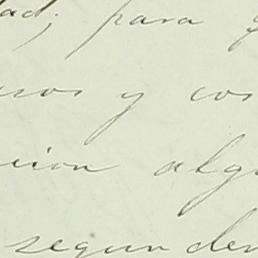 ad; para
sos y cos
cion alg
segun de